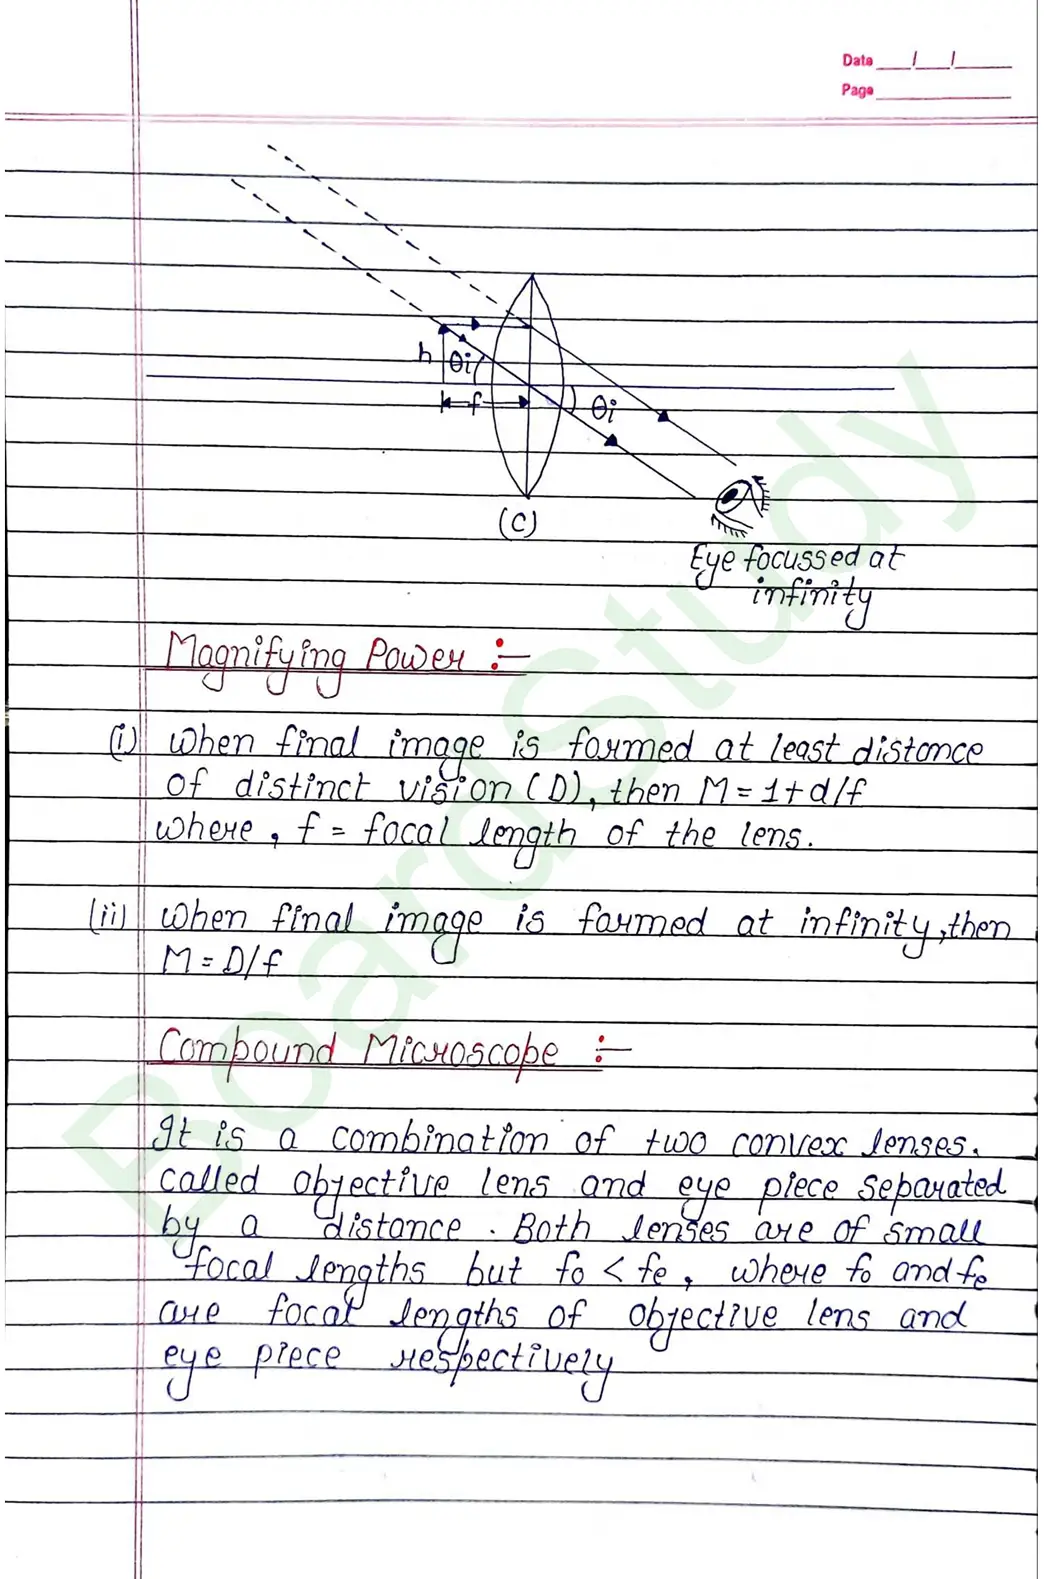 Date ___/___/_____
Page ______________
h
θi
f
θi
(C)
Eye focussed at
infinity
Magnifying Power :-
(i) When final image is formed at least distance
of distinct vision (D), then M = 1 + d/f
where, f = focal length of the lens.
(ii) When final image is formed at infinity, then
M = D/f
Compound Microscope :-
It is a combination of two convex lenses.
called objective lens and eye piece separated
by a distance. Both lenses are of small
focal lengths but fo < fe, where fo and fe
are focal lengths of objective lens and
eye piece respectively
BoardStudy